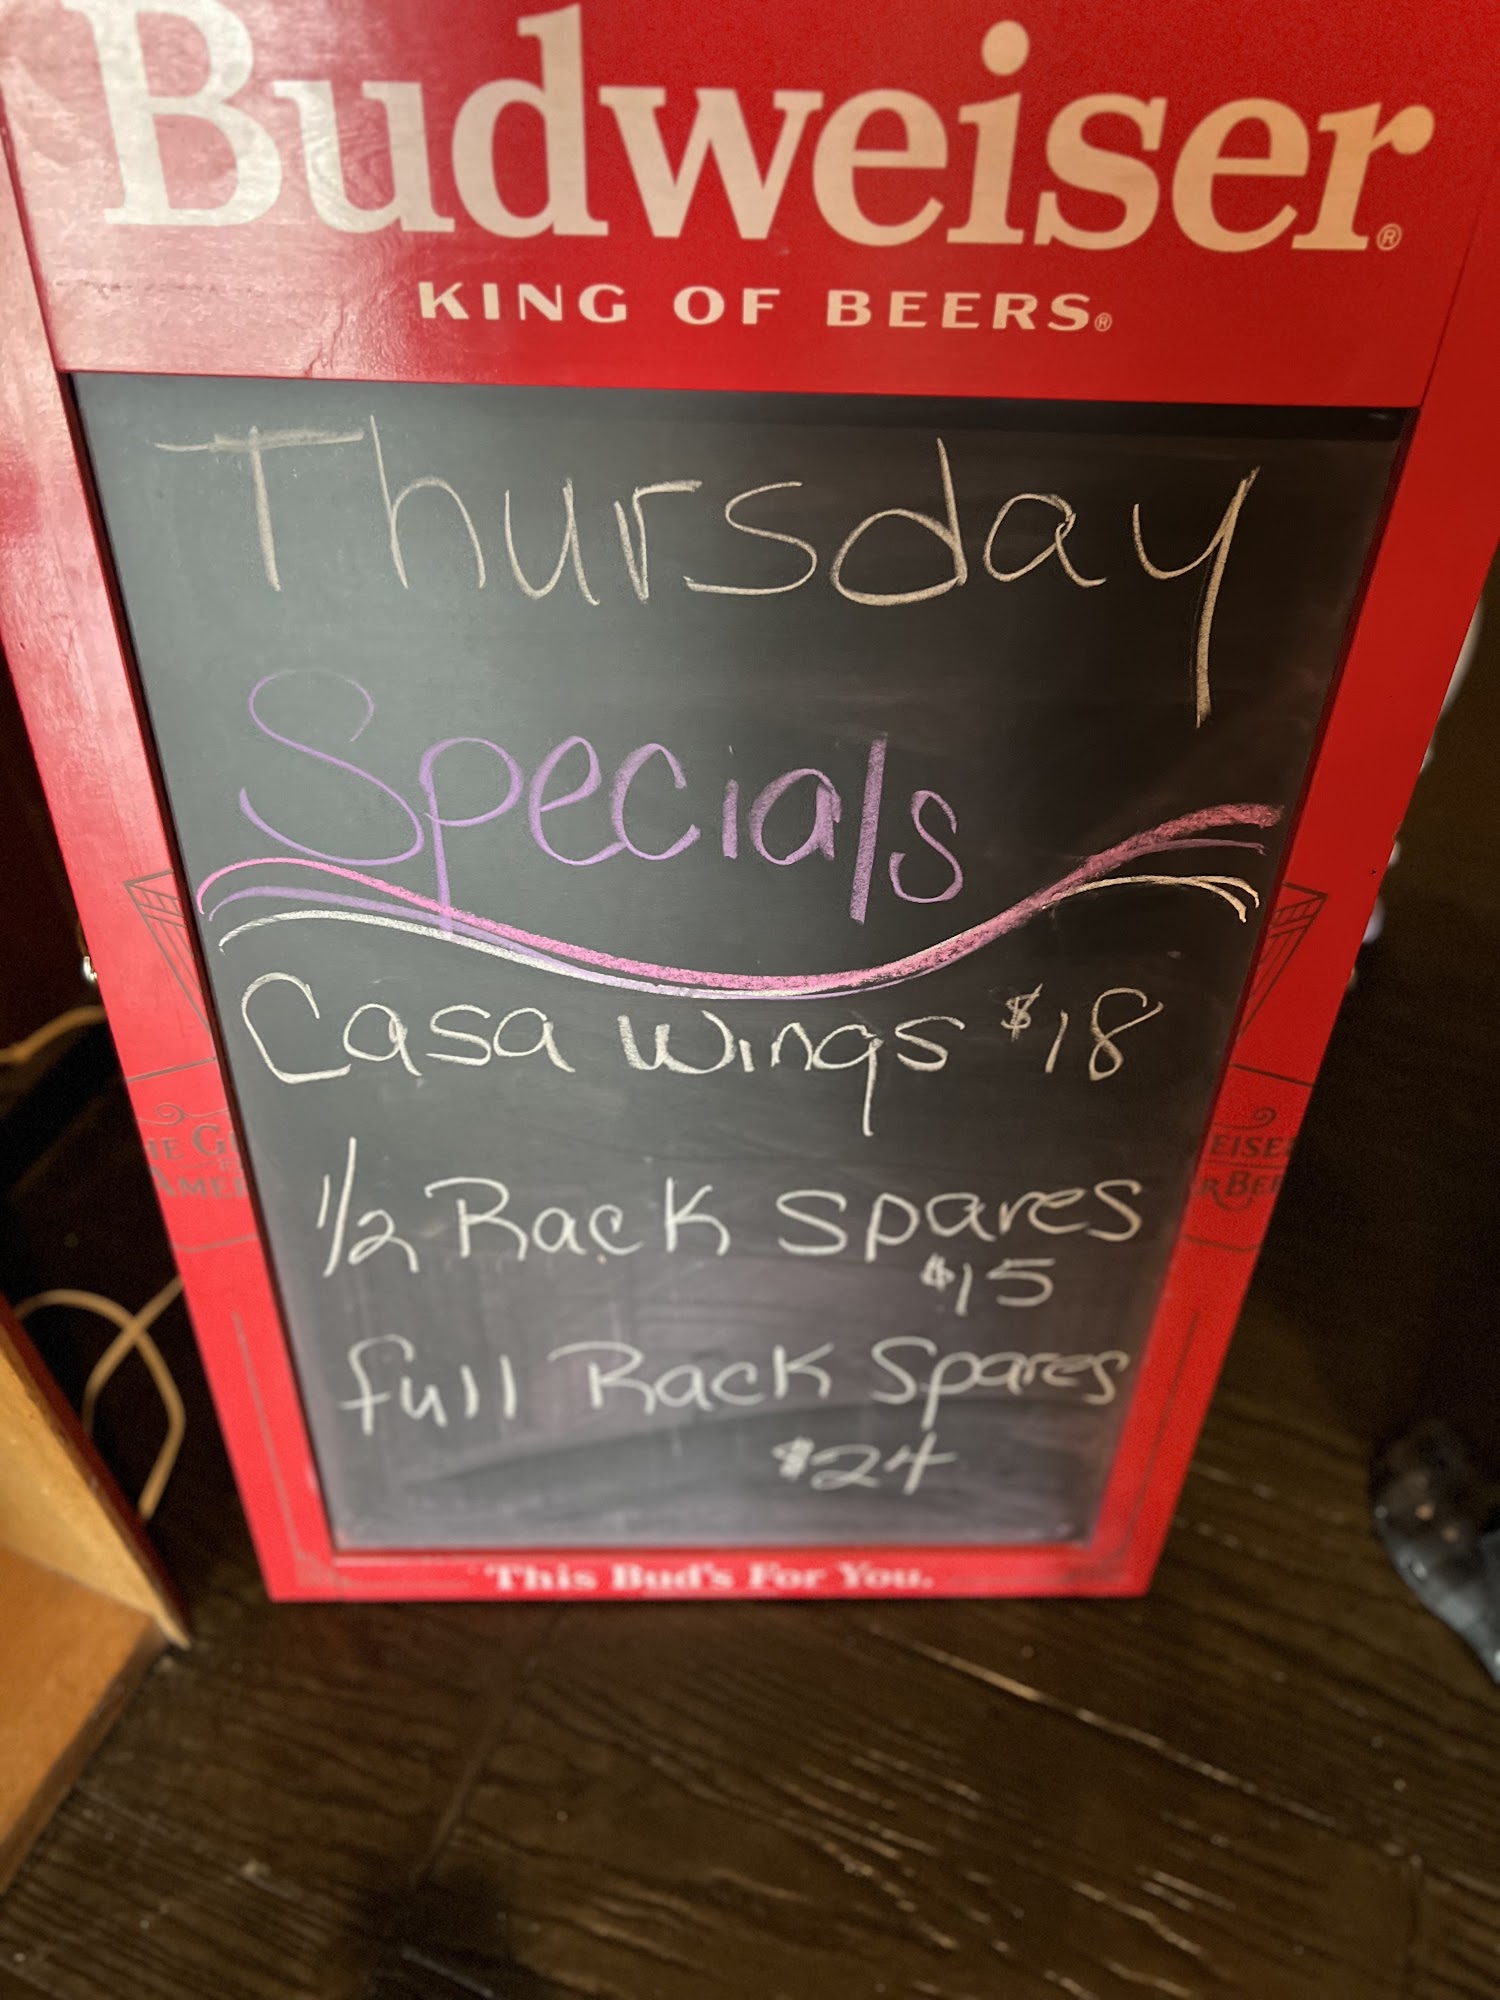 Budweiser®
KING OF BEERS®
Thursday
Specials
Casa Wings $18
1/2 Rack Spares
$15
full Rack Spares
$24
This Bud's For You.